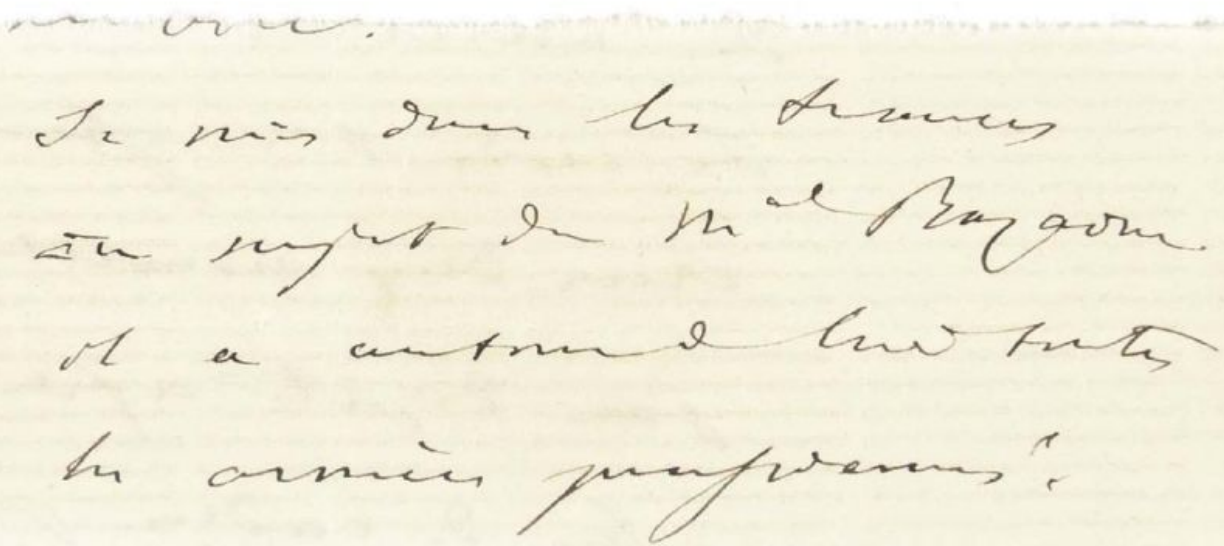 Je suis dans les transes
au sujet du M^al Bazaine
il a autour de lui toutes
les armées prussiennes!